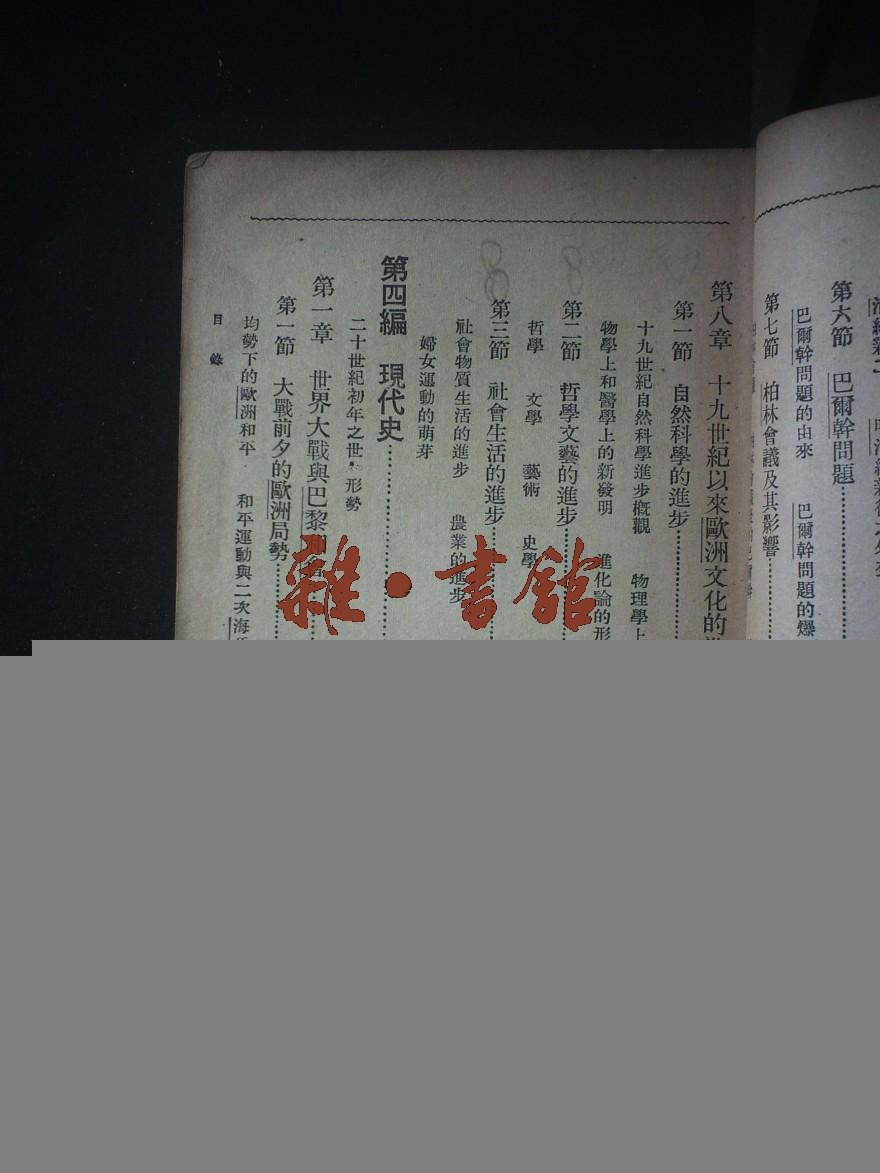 第六節　巴爾幹問題
巴爾幹問題的由來　巴爾幹問題的爆
第七節　柏林會議及其影響
第八章　十九世紀以來歐洲文化的
第一節　自然科學的進步
十九世紀自然科學進步概觀　物理學上
物學上和醫學上的新發明　進化論的形
第二節　哲學文藝的進步
哲學　文學　藝術　史學
第三節　社會生活的進步
社會物質生活的進步　農業的進步
婦女運動的萌芽
第四編　現代史
二十世紀初年之世　形勢
第一章　世界大戰與巴黎
第一節　大戰前夕的歐洲局勢
均勢下的歐洲和平　和平運動與二次海
目錄
雜·書館